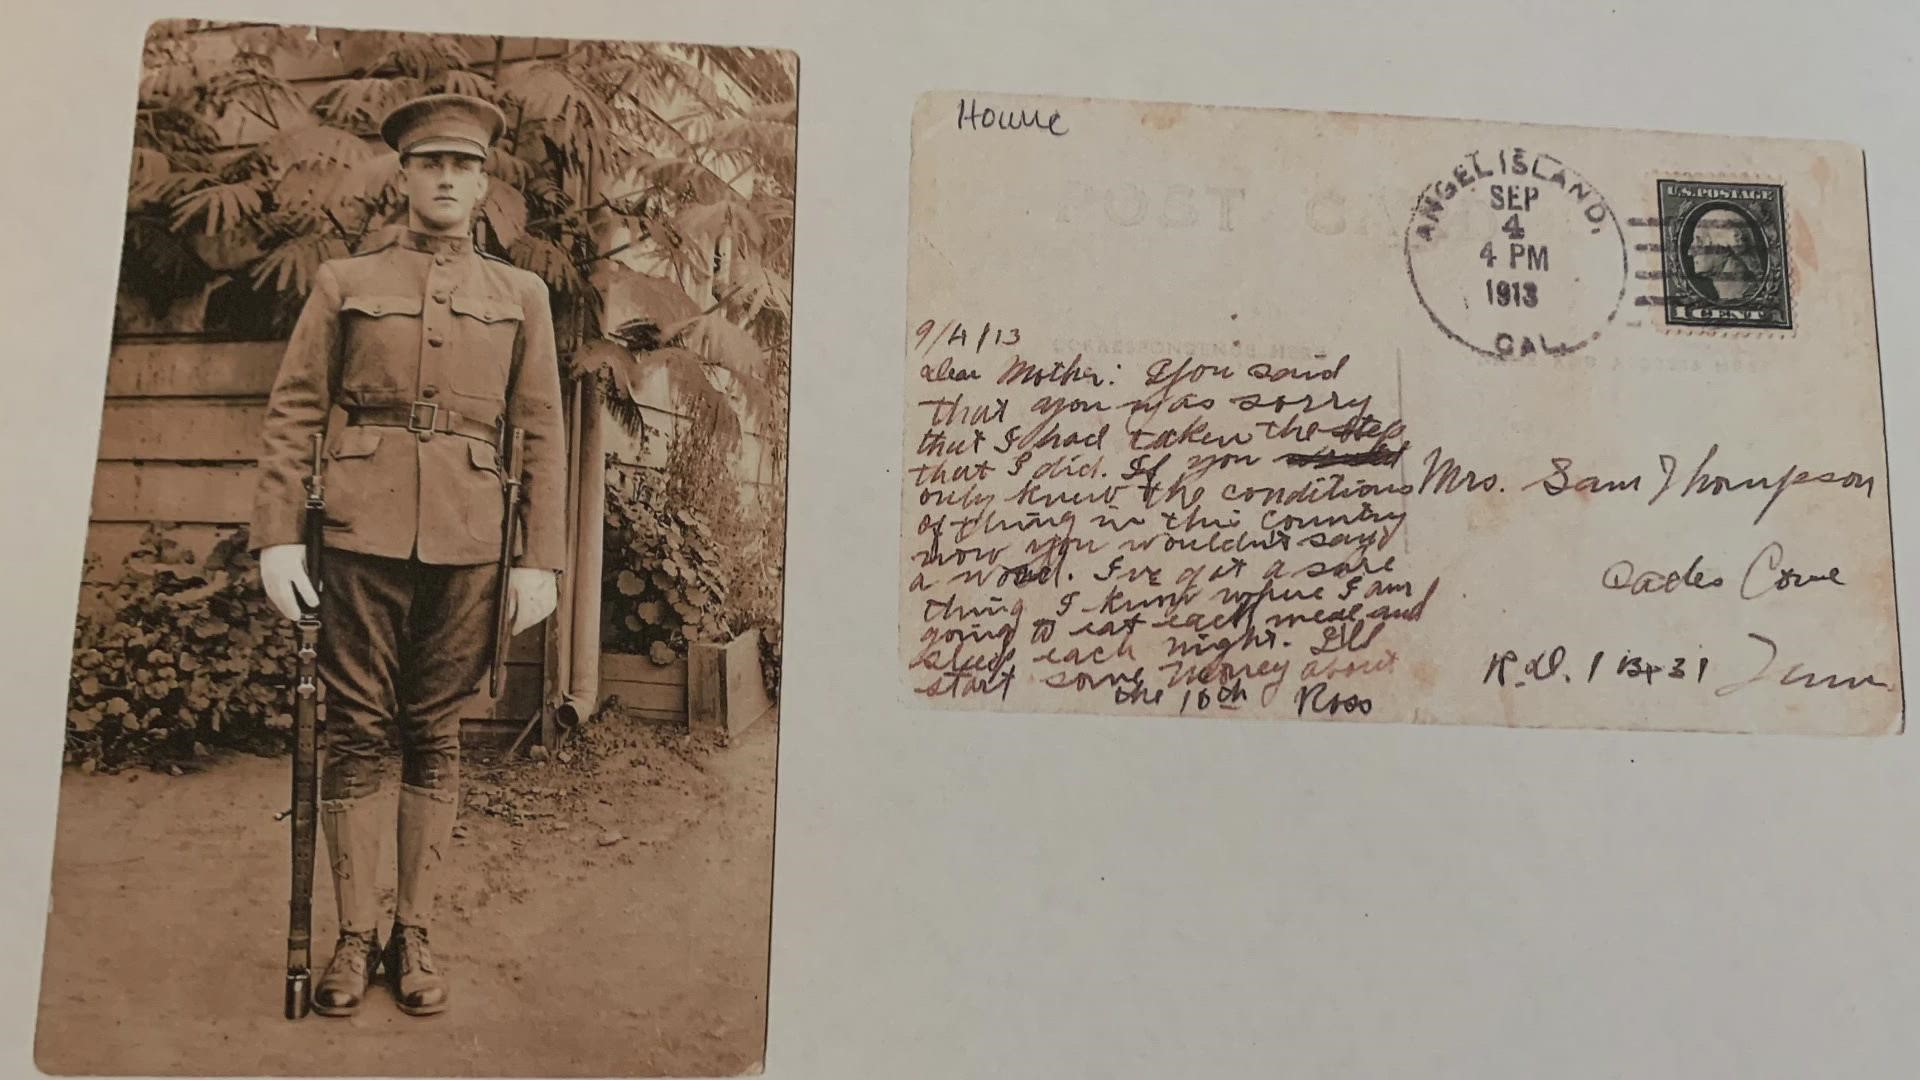 Howne
POST CARD
ANGEL ISLAND,
SEP
4
4 PM
1913
CAL.
U.S. POSTAGE
1 CENT 1
9/4/13
dear Mother: You said
that you was sorry
that I had taken the step
that I did. If you
only knew the conditions
of thing in this country
now you wouldn't say
a word. I've got a sure
thing I know where I am
going to eat each meal and
sleep each night. I'll
start some money about
the 10th Ross
Mrs. Sam Thompson
Cades Cove
R.D. 1 Bx 31 Tenn.